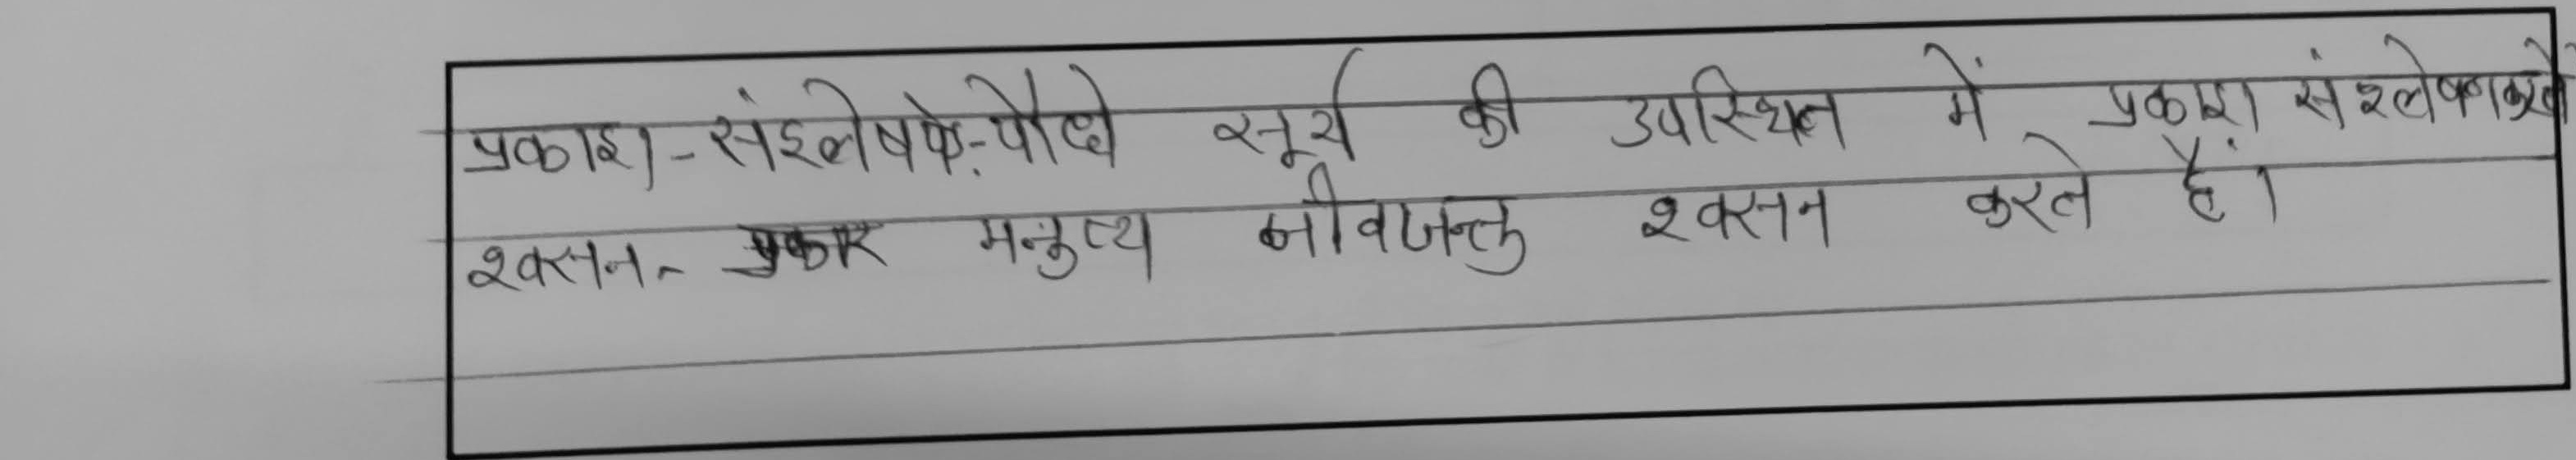 प्रकाश-संश्लेषके:-पौधे सूर्य की उपस्थित में प्रकाश संश्लेषण करते
श्वसन- मनुष्य जीवजन्तु श्वसन करते हैं।